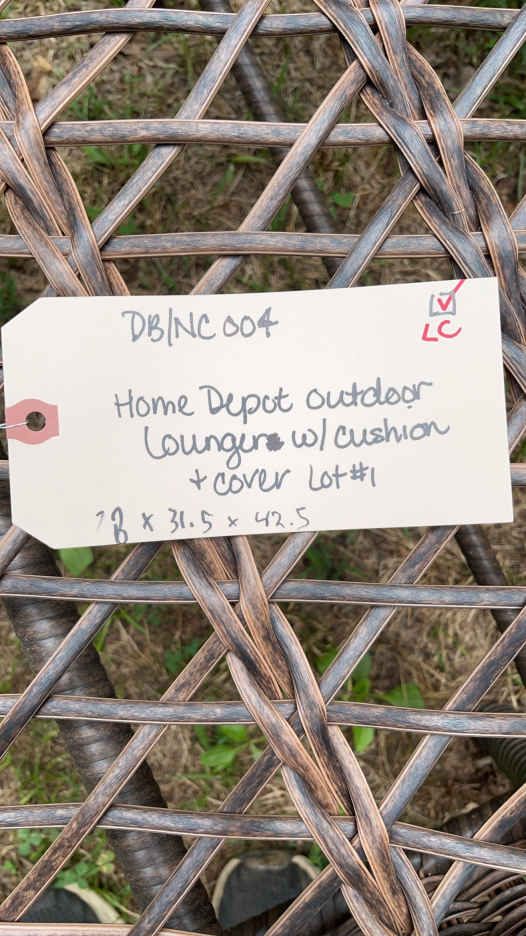 DB/NC 004
LC
Home Depot outdoor
Lounger w/ cushion
+ cover Lot #1
x 31.5 x 42.5